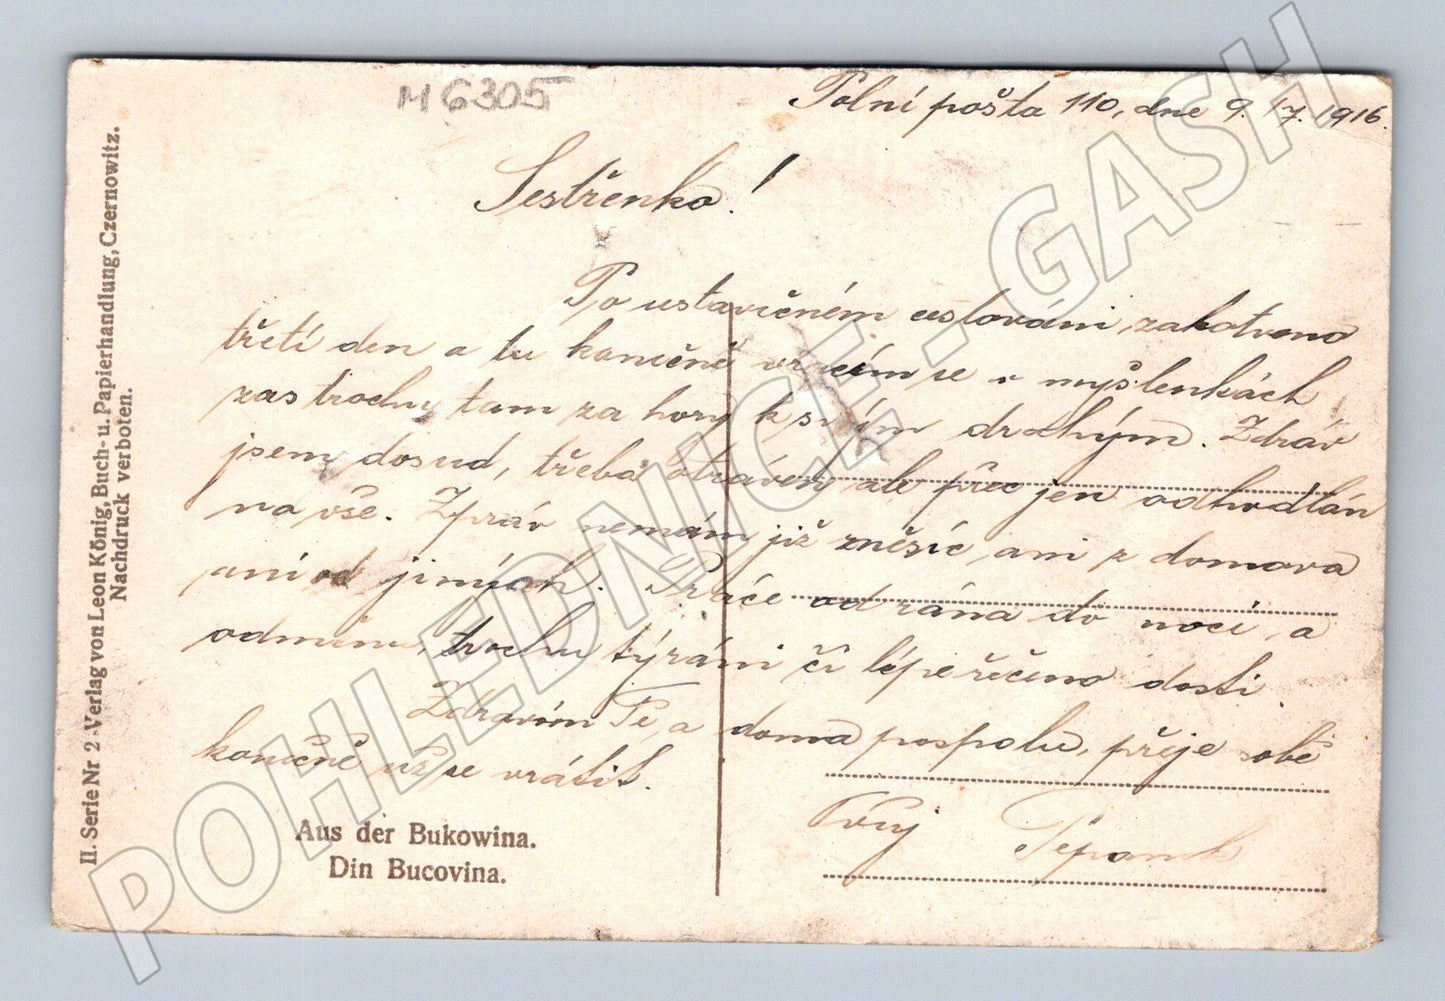 M 6305
Polní pošta 110, dne 9./7. 1916.
Sestřenko!
Po ustavičném cestování zakotveno
třetí den a tu konečně vracím se v myšlenkách
zas trochu tam za hory k svým drahým. Zdráv
jsem dosud, třeba otráven ale přec jen odhodlán
na vše. Zpráv nemám již měsíc ani z domova
ani od jiných. Práce od rána do noci, a
odměnu, trochu týrání či lépe řečeno dosti.
Zdravím Tě, a doma pospolu, přeje sobě
konečně už se vrátit.
Tvůj
Aus der Bukowina.
Din Bucovina.
II. Serie Nr 2 Verlag von Leon König, Buch- u. Papierhandlung, Czernowitz.
Nachdruck verboten.
POHLEDNICE - GASH